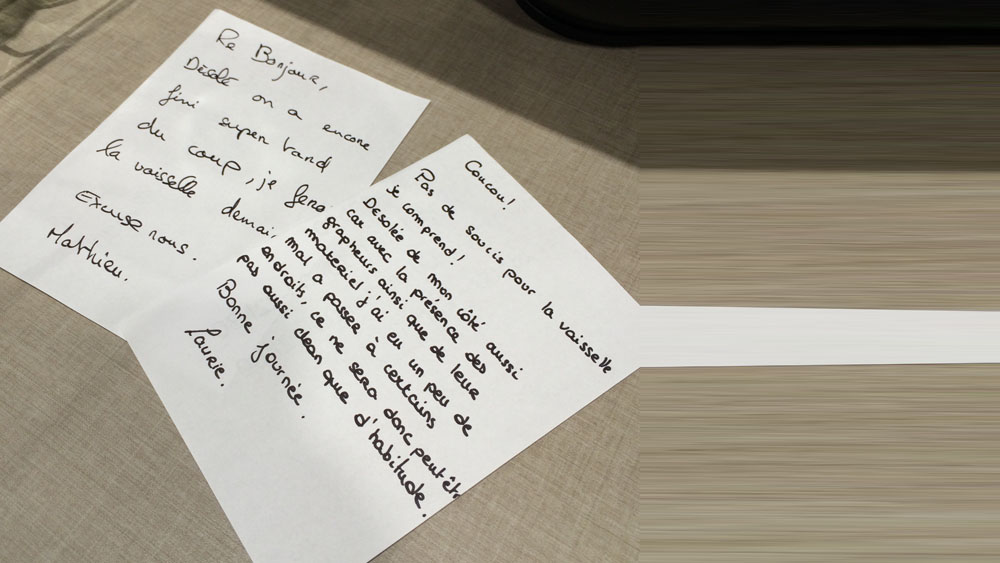 Re Bonjour,
Désolé on a encore
fini super tard
du coup, je ferai
la vaisselle demai
Excuse nous.
Matthieu.
Coucou!
Pas de soucis pour la vaisselle
je comprend!
Désolée de mon côté aussi
car avec la présence des
grapheurs ainsi que de leur
materiel j'ai eu un peu de
mal a passer à certains
endroits, ce ne sera donc peut êtr
pas aussi clean que d'habitude.
Bonne journée.
Laurie.